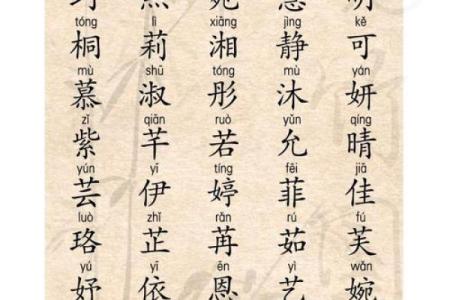 tóng lì xiāng jìng kě
桐 莉 湘 静 可
mù shū tóng mù yán
慕 淑 彤 沐 妍
zǐ qiān ruò yǔn qíng
紫 芊 若 允 晴
yún yī tíng fēi jiā
芸 伊 婷 菲 佳
luò zhǐ rǎn rú fú
珞 芷 苒 茹 芙
yú yī ēn yì wǎn
妤 依 恩 艺 婉